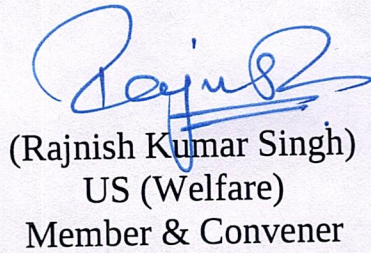 Rajnish
(Rajnish Kumar Singh)
US (Welfare)
Member & Convener